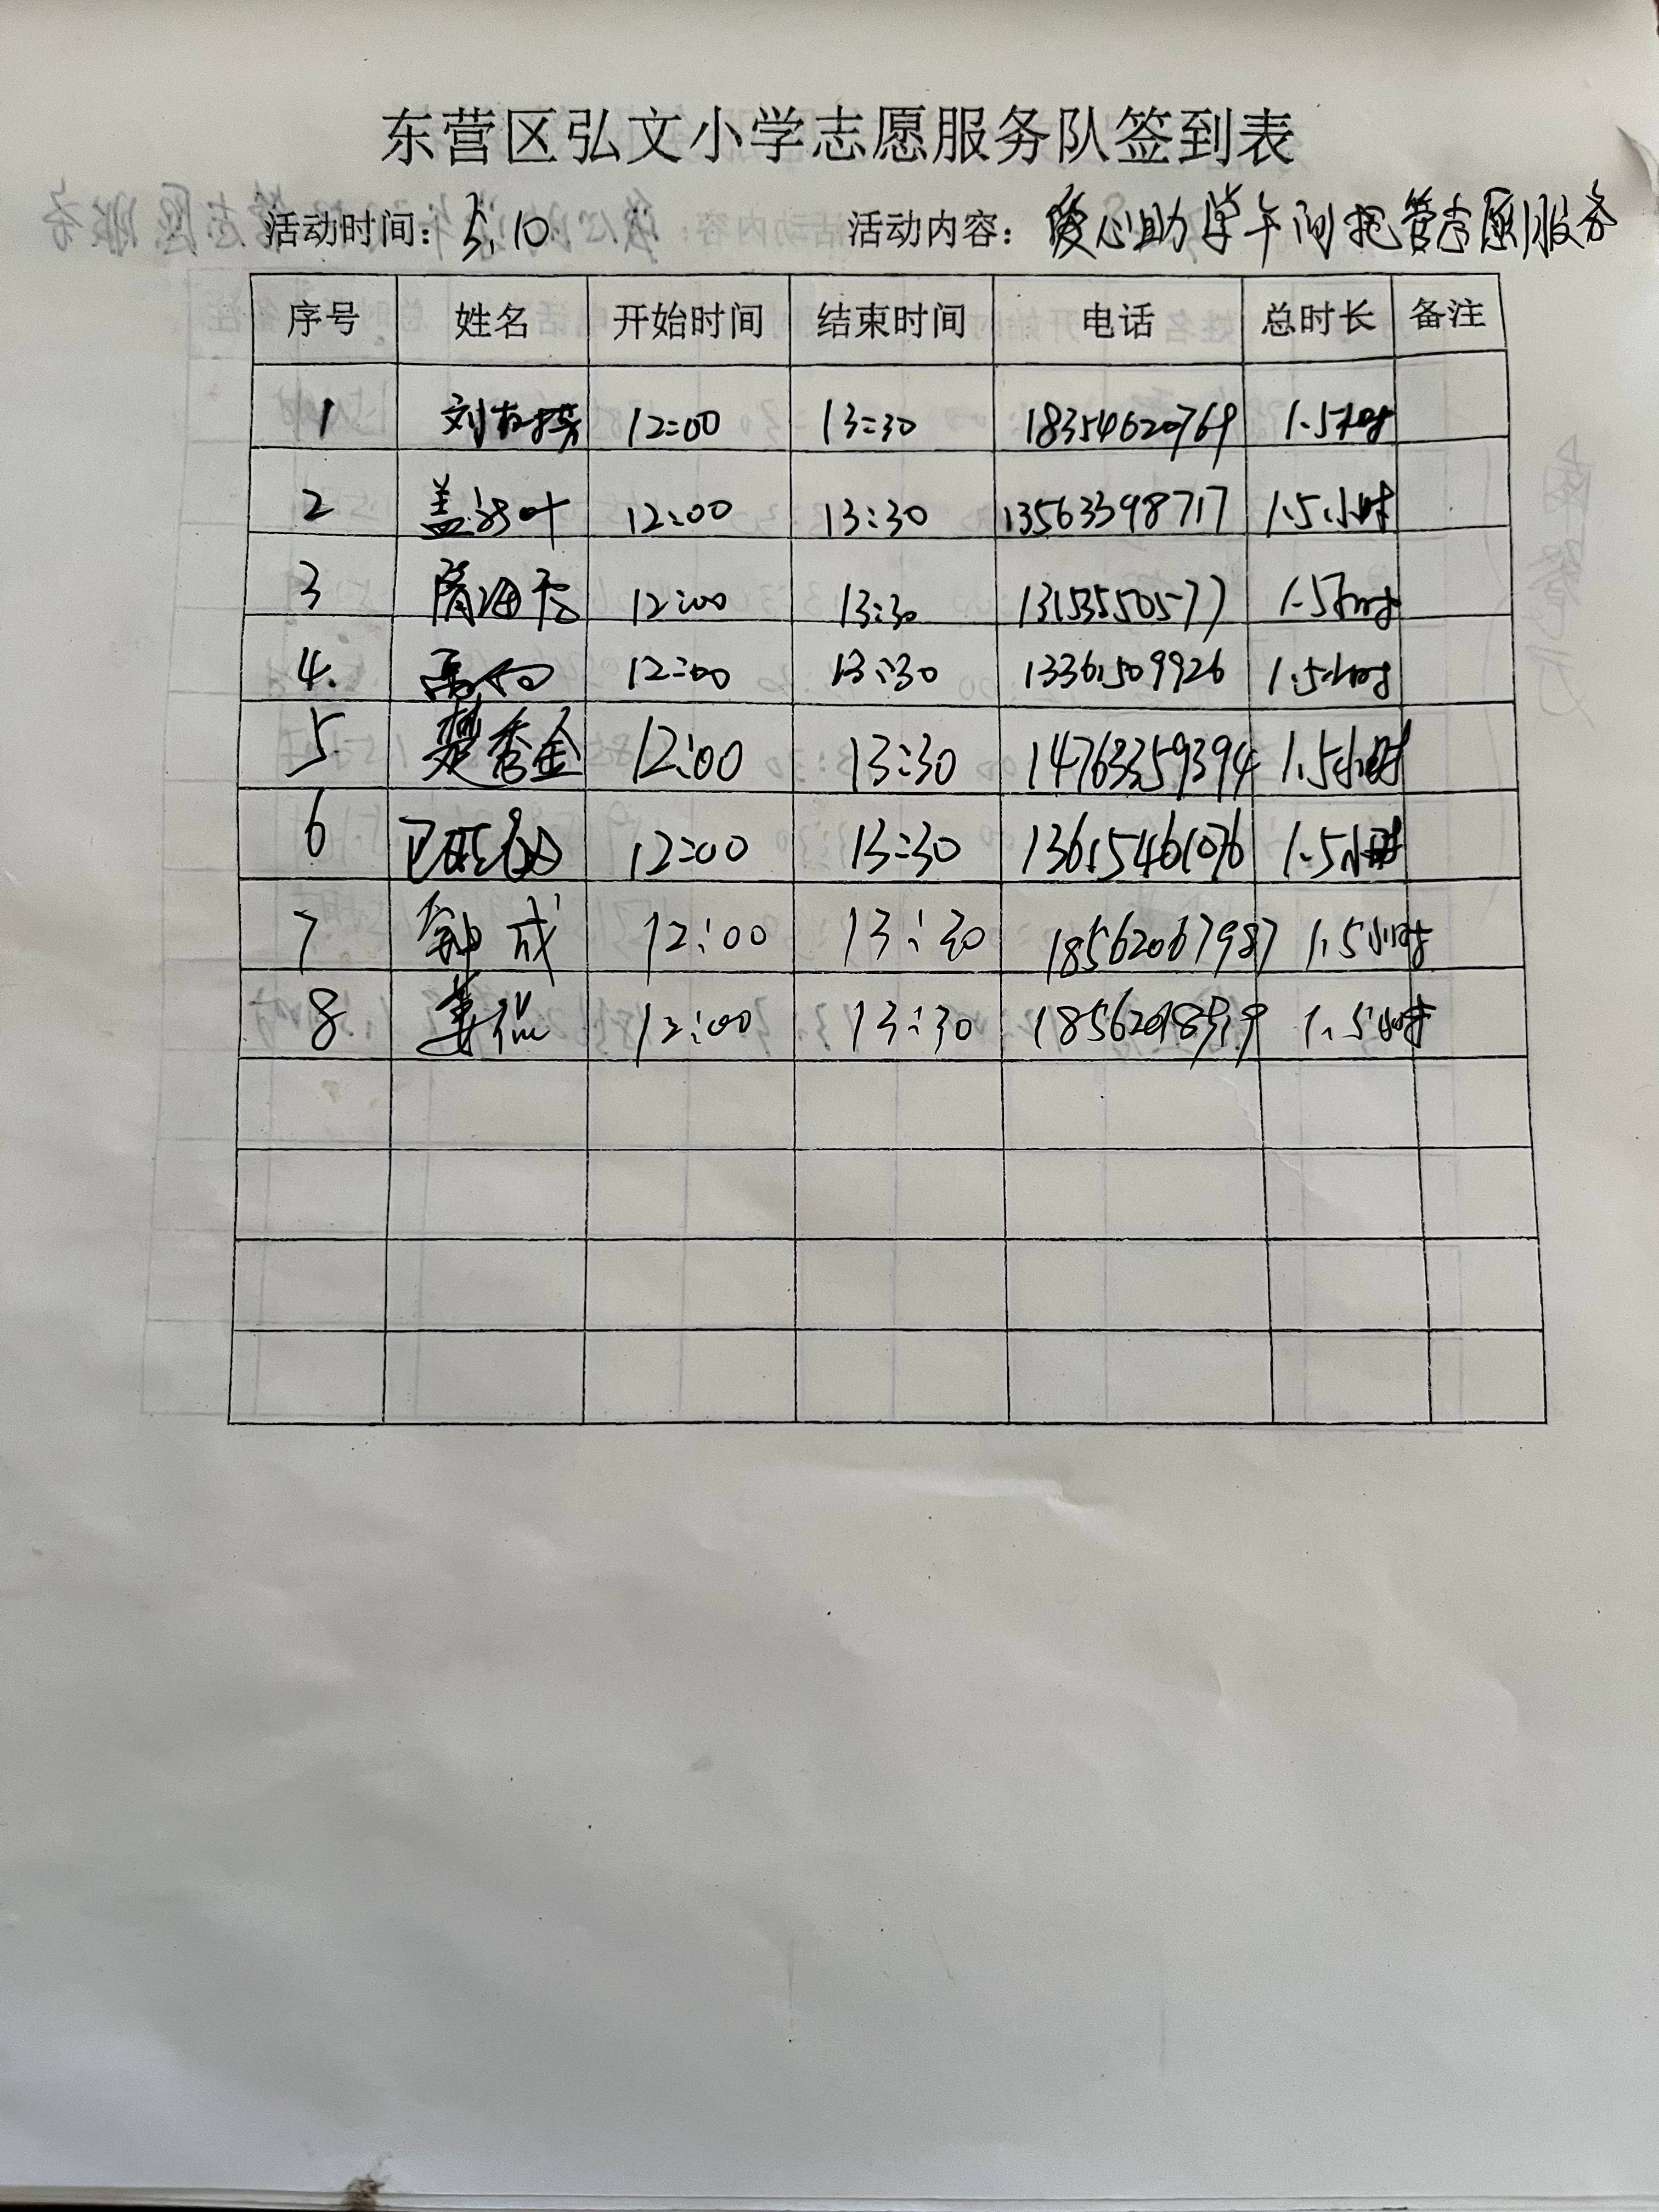 东营区弘文小学志愿服务队签到表
活动时间：5.10 活动内容：爱心助学午间托管志愿服务
序号 姓名 开始时间 结束时间 电话 总时长 备注
1 12:00 13:30 18354620769 1.5小时
2 12:00 13:30 13563398717 1.5小时
3 12:00 13:30 13153550577 1.5小时
4. 12:00 13:30 13361509926 1.5小时
5 楚秀金 12:00 13:30 14763359394 1.5小时
6 12:00 13:30 13615461076 1.5小时
7 12:00 13:30 18562067987 1.5小时
8 12:00 13:30 1.5小时